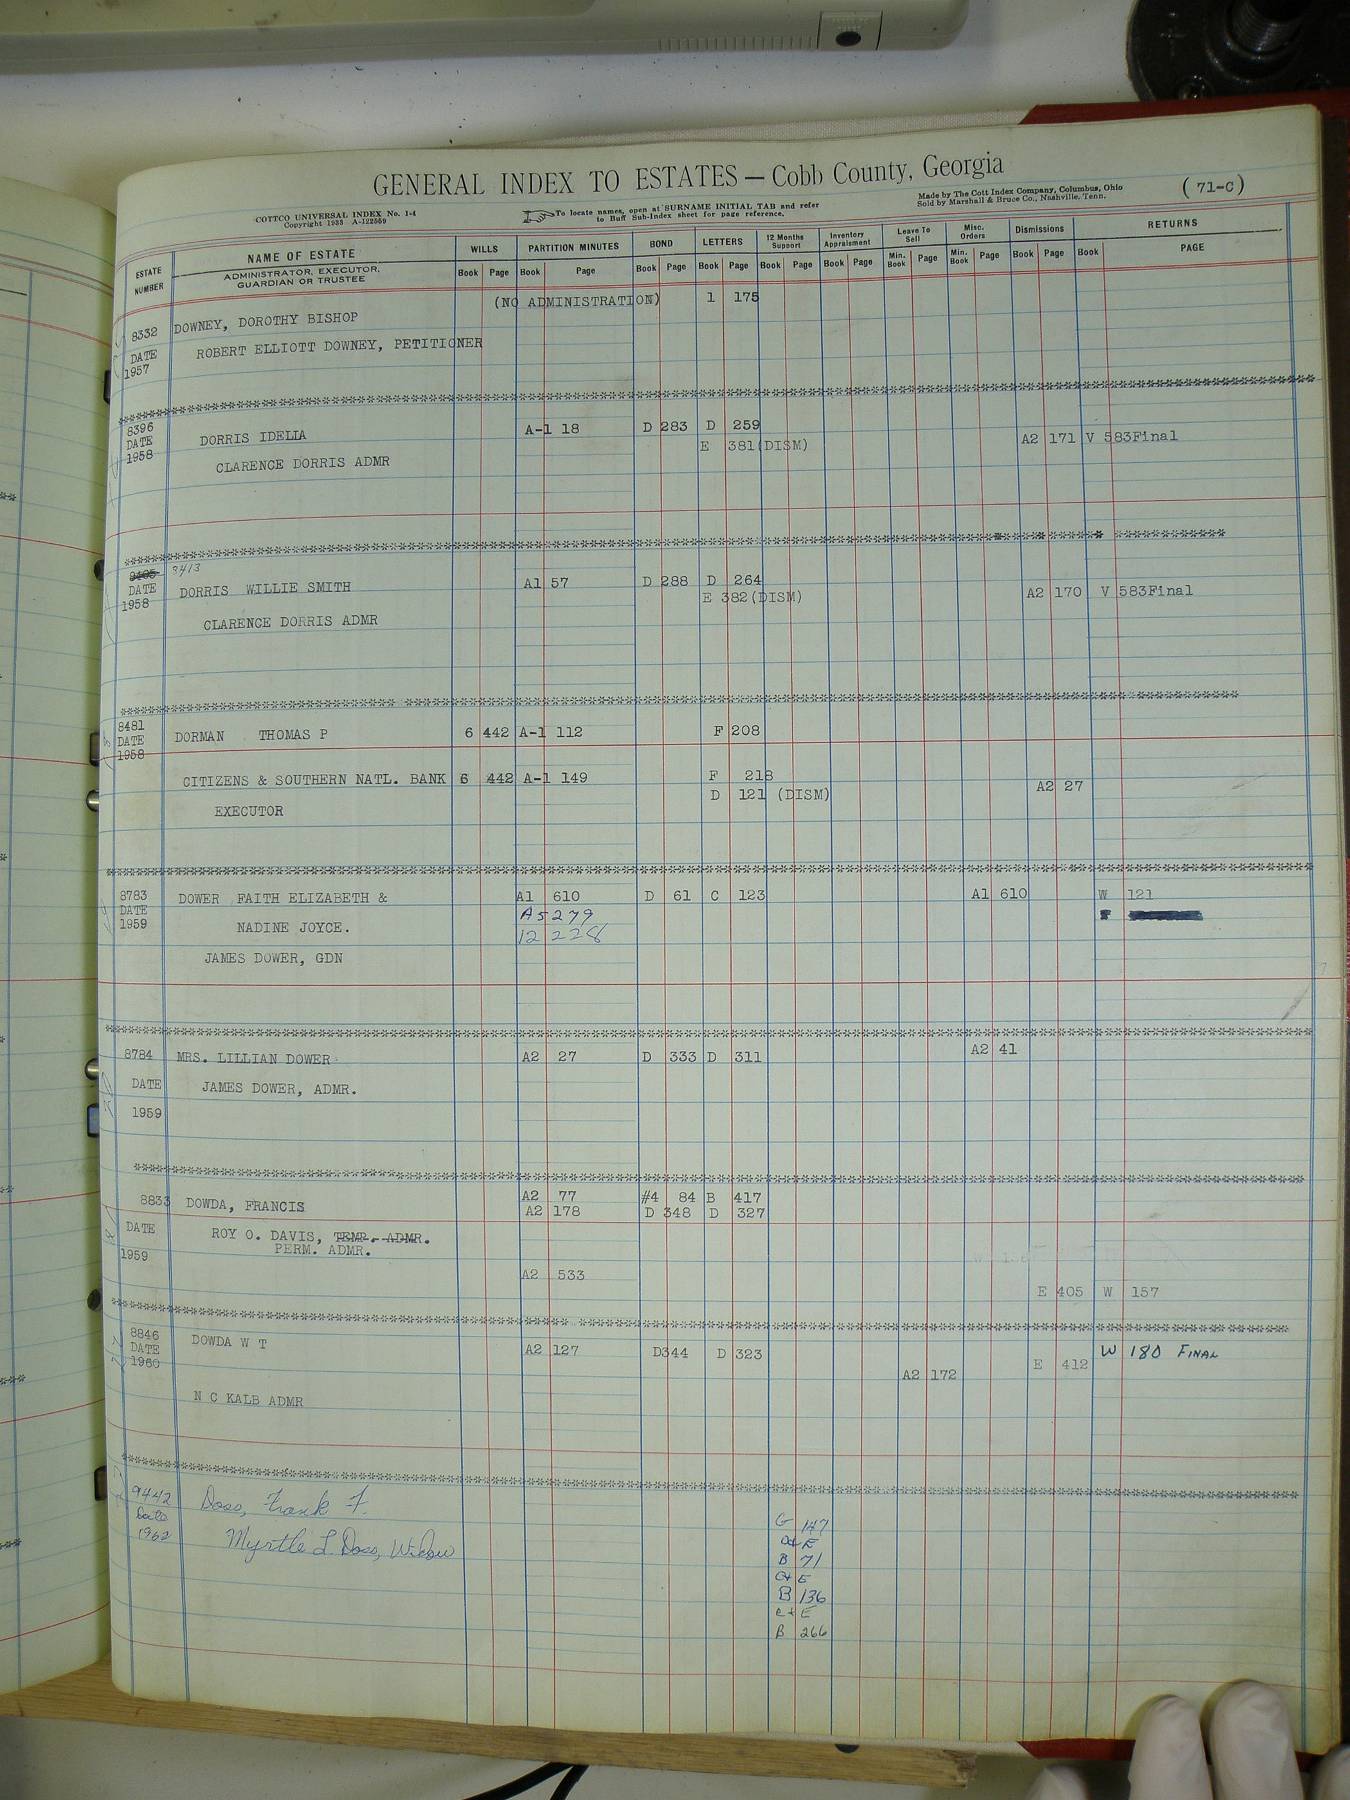 GENERAL INDEX TO ESTATES — Cobb County, Georgia
(71-C)
COTTCO UNIVERSAL INDEX No. 1-4
Copyright 1935 A-122559
To locate names, open at SURNAME INITIAL TAB and refer
to Buff Sub-Index sheet for page reference.
Made by The Cott Index Company, Columbus, Ohio
Sold by Marshall & Bruce Co., Nashville, Tenn.
ESTATE NUMBER NAME OF ESTATE WILLS PARTITION MINUTES BOND LETTERS 12 Months Support Inventory Appraisment Leave To Sell Misc. Orders Dismissions RETURNS
ADMINISTRATOR, EXECUTOR, GUARDIAN OR TRUSTEE Book Page Book Page Book Page Book Page Book Page Book Page Min. Book Page Min. Book Page Book Page Book PAGE
(NO ADMINISTRATION) 1 175
8332 DOWNEY, DOROTHY BISHOP
DATE ROBERT ELLIOTT DOWNEY, PETITIONER
1957
8396 A-1 18 D 283 D 259
DATE DORRIS IDELIA E 381(DISM) A2 171 V 583Final
1958 CLARENCE DORRIS ADMR
8413
DATE DORRIS WILLIE SMITH A1 57 D 288 D 264 A2 170 V 583Final
1958 E 382(DISM)
CLARENCE DORRIS ADMR
8481
DATE DORMAN THOMAS P 6 442 A-1 112 F 208
1958
CITIZENS & SOUTHERN NATL. BANK 6 442 A-1 149 F 218
D 121 (DISM) A2 27
EXECUTOR
8783 DOWER FAITH ELIZABETH & A1 610 D 61 C 123 A1 610 W 121
DATE A5 279 F
1959 NADINE JOYCE. 12 228
JAMES DOWER, GDN
8784 MRS. LILLIAN DOWER A2 27 D 333 D 311 A2 41
DATE JAMES DOWER, ADMR.
1959
8833 DOWDA, FRANCIS A2 77 #4 84 B 417
A2 178 D 348 D 327
DATE ROY O. DAVIS, TEMP. ADMR.
1959 PERM. ADMR.
A2 533 E 405 W 157
8846
DATE DOWDA W T A2 127 D344 D 323 W 180 FINAL
1960 A2 172 E 412
N C KALB ADMR
9442 Doss, Frank F.
Date
1962 Myrtle L. Doss, Widow
G 147
O & E
B 71
O & E
B 136
C & E
B 266